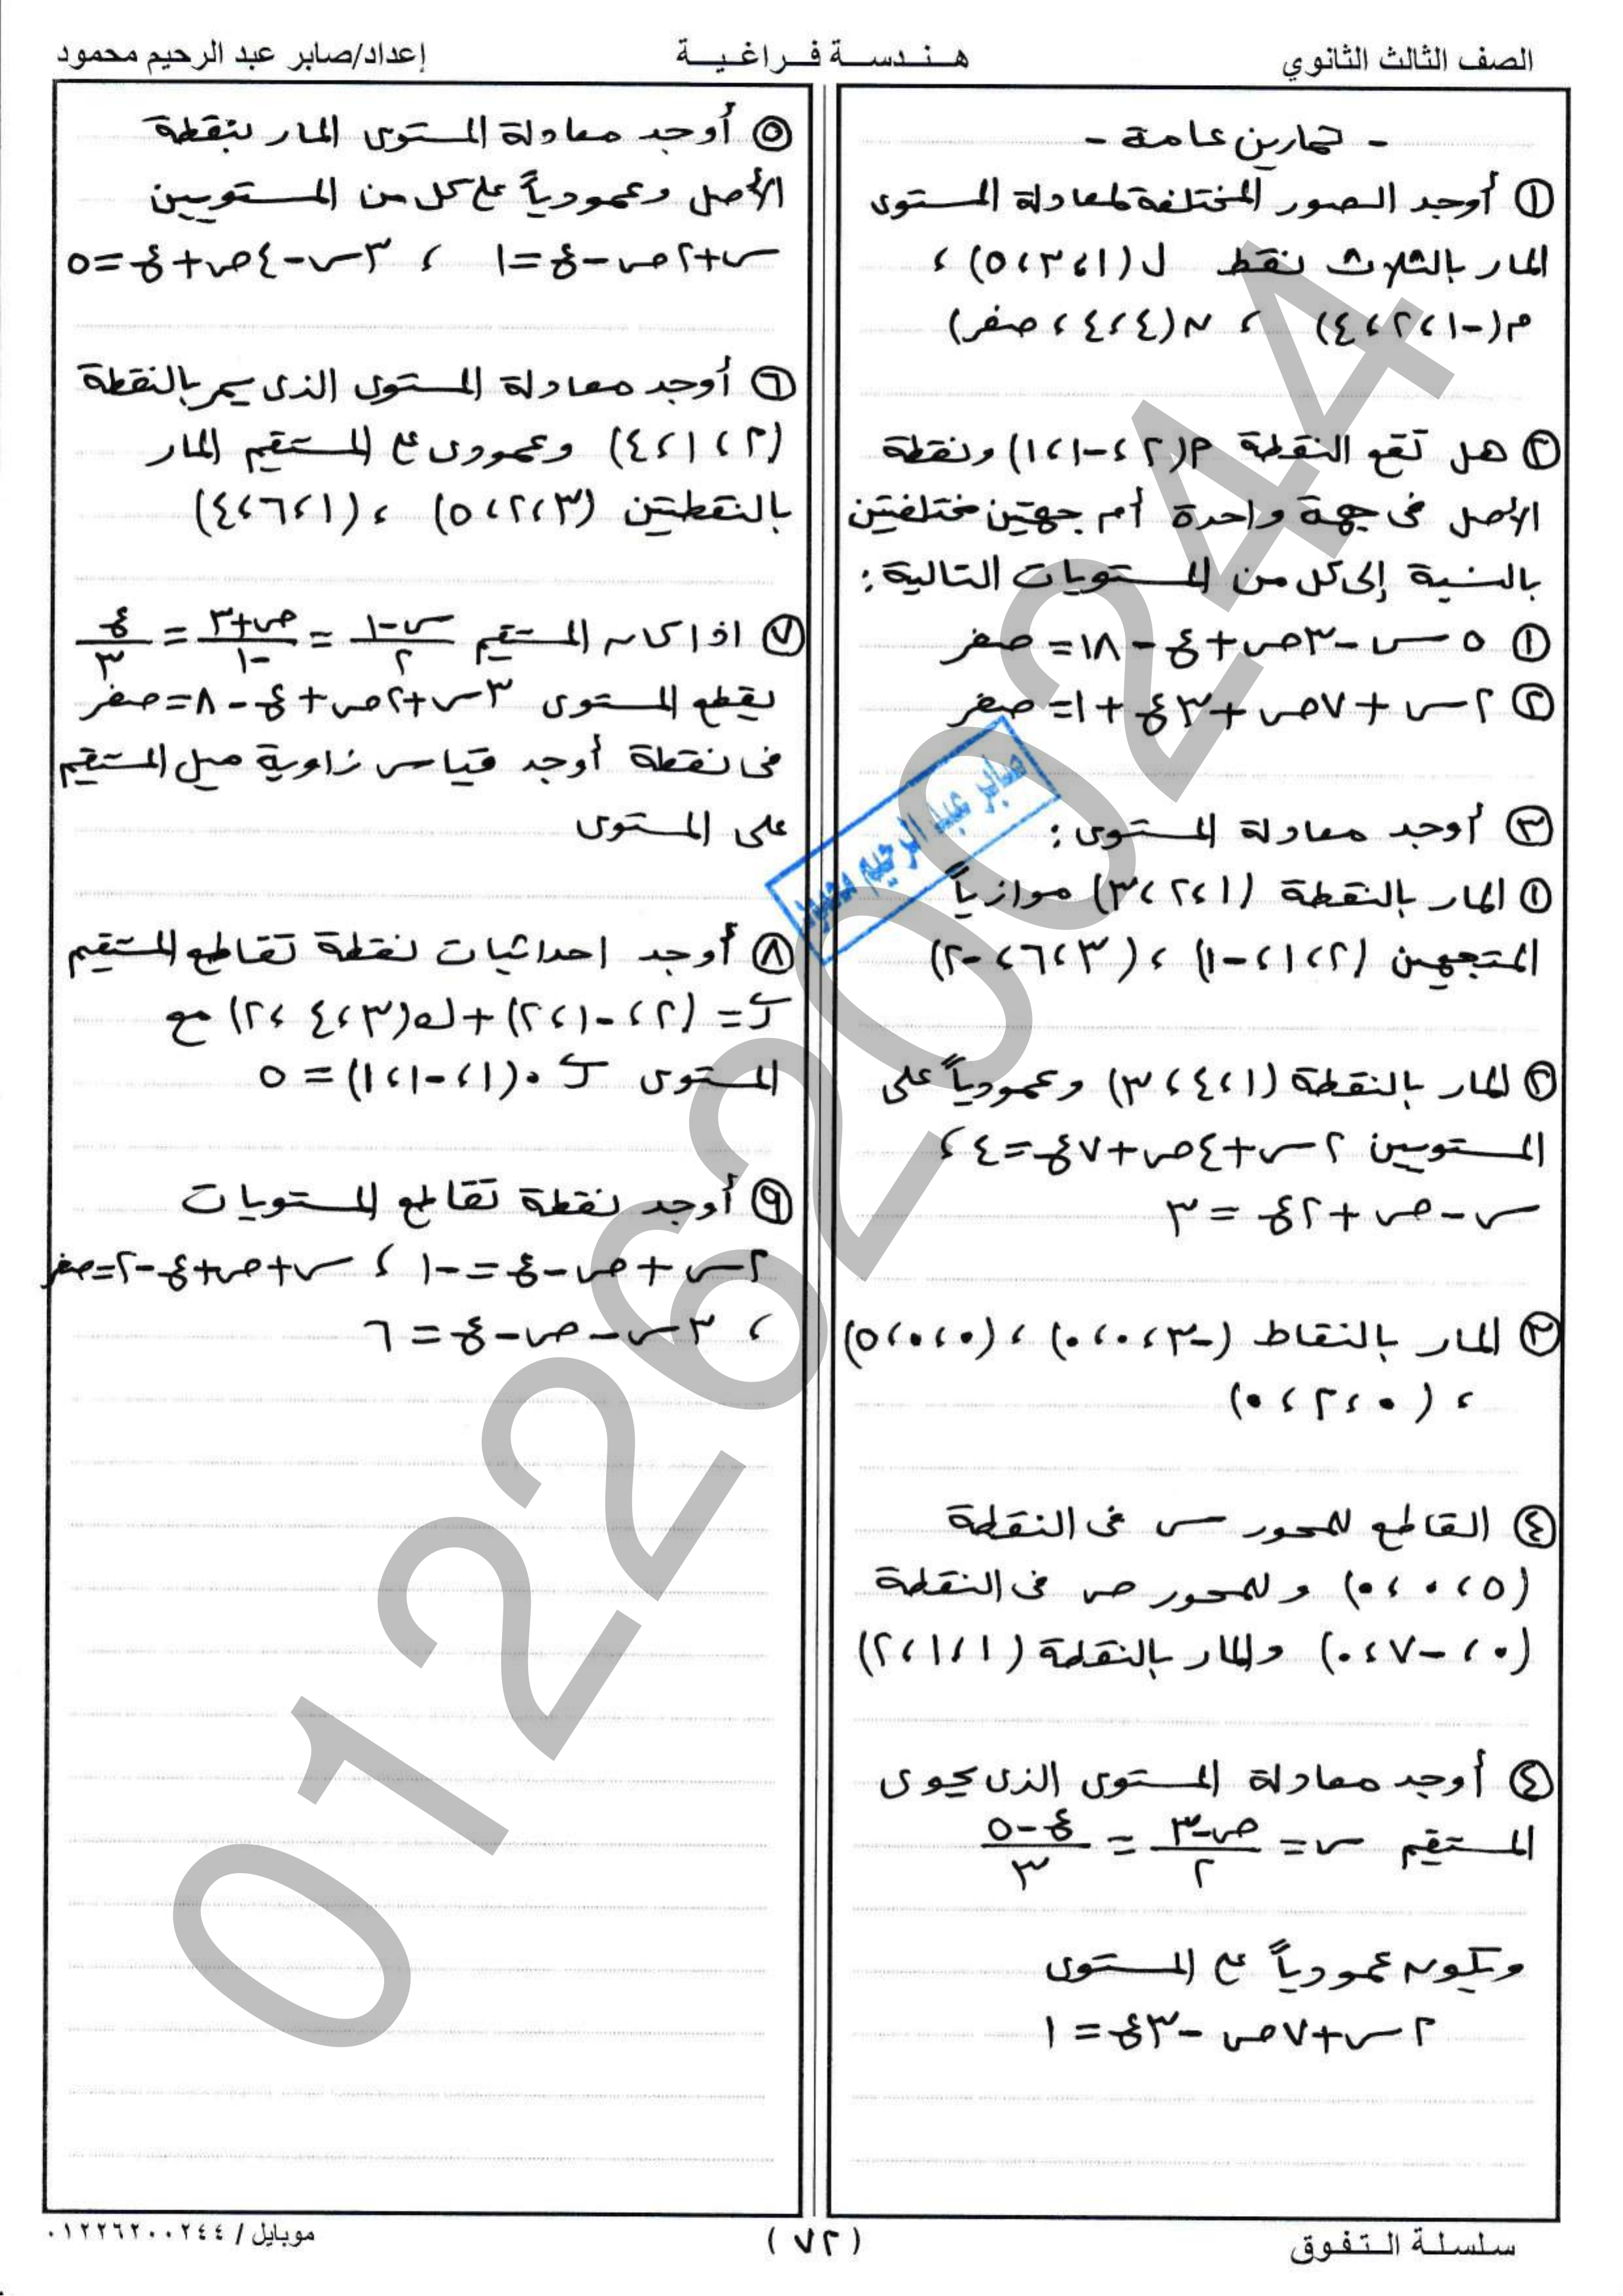 الصف الثالث الثانوي
هـنـدسـة فـراغـيـة
إعداد/صابر عبد الرحيم محمود
- تمارين عامة -
① أوجد الصور المختلفة لمعادلة المستوى
المار بالثلاث نقط ل (١، ٣، ٥) ،
م (-١، ٢، ٤) ، ن (٤، ٤، صفر)
② هل تقع النقطة م (٢، -١، ١) ونقطة
الأصل فى جهة واحدة أم جهتين مختلفتين
بالنسبة إلى كل من المستويات التالية :
① ٥ س - ٣ ص + ع - ١٨ = صفر
② ٢ س + ٧ ص + ٣ ع + ١ = صفر
③ أوجد معادلة المستوى :
① المار بالنقطة (١، ٢، ٣) موازياً
المتجهين (٢، ١، -١) ، (٣، ٦، -٢)
② المار بالنقطة (١، ٤، ٣) وعمودياً على
المستويين ٢ س + ٤ ص + ٧ ع = ٤ ،
س - ص + ٢ ع = ٣
③ المار بالنقاط (-٣، ٠، ٠) ، (٠، ٠، ٥)
، (٠، ٢، ٠)
④ القاطع للمحور س فى النقطة
(٥، ٠، ٠) وللمحور ص فى النقطة
(٠، -٧، ٠) والمار بالنقطة (١، ١، ٢)
④ أوجد معادلة المستوى الذى يحوى
المستقيم س = (ص - ٣)/٢ = (ع - ٥)/٣
ويكون عمودياً على المستوى
٢ س + ٧ ص - ٣ ع = ١
⑤ أوجد معادلة المستوى المار بنقطة
الأصل وعمودياً على كل من المستويين
س + ٢ ص - ع = ١ ، ٣ س - ٤ ص + ع = ٥
⑥ أوجد معادلة المستوى الذى يمر بالنقطة
(٢، ١، ٤) وعمودى على المستقيم المار
بالنقطتين (٣، ٢، ٥) ، (١، ٦، ٤)
⑦ اذا كان المستقيم (س - ١)/٢ = (ص + ٣)/-١ = ع/٣
يقطع المستوى ٣ س + ٢ ص + ع - ٨ = صفر
فى نقطة أوجد قياس زاوية ميل المستقيم
على المستوى
⑧ أوجد احداثيات نقطة تقاطع المستقيم
ر = (٢، -١، ٢) + ك (٣، ٤، ٢) مع
المستوى ر . (١، -١، ١) = ٥
⑨ أوجد نقطة تقاطع المستويات
٢ س + ص - ع = -١ ، س + ص + ع - ٢ = صفر
، ٣ س - ص - ع = ٦
صابر عبد الرحيم محمود
01226200244
سلسلة التفوق
(٧٢)
موبايل / ٠١٢٢٦٢٠٠٢٤٤